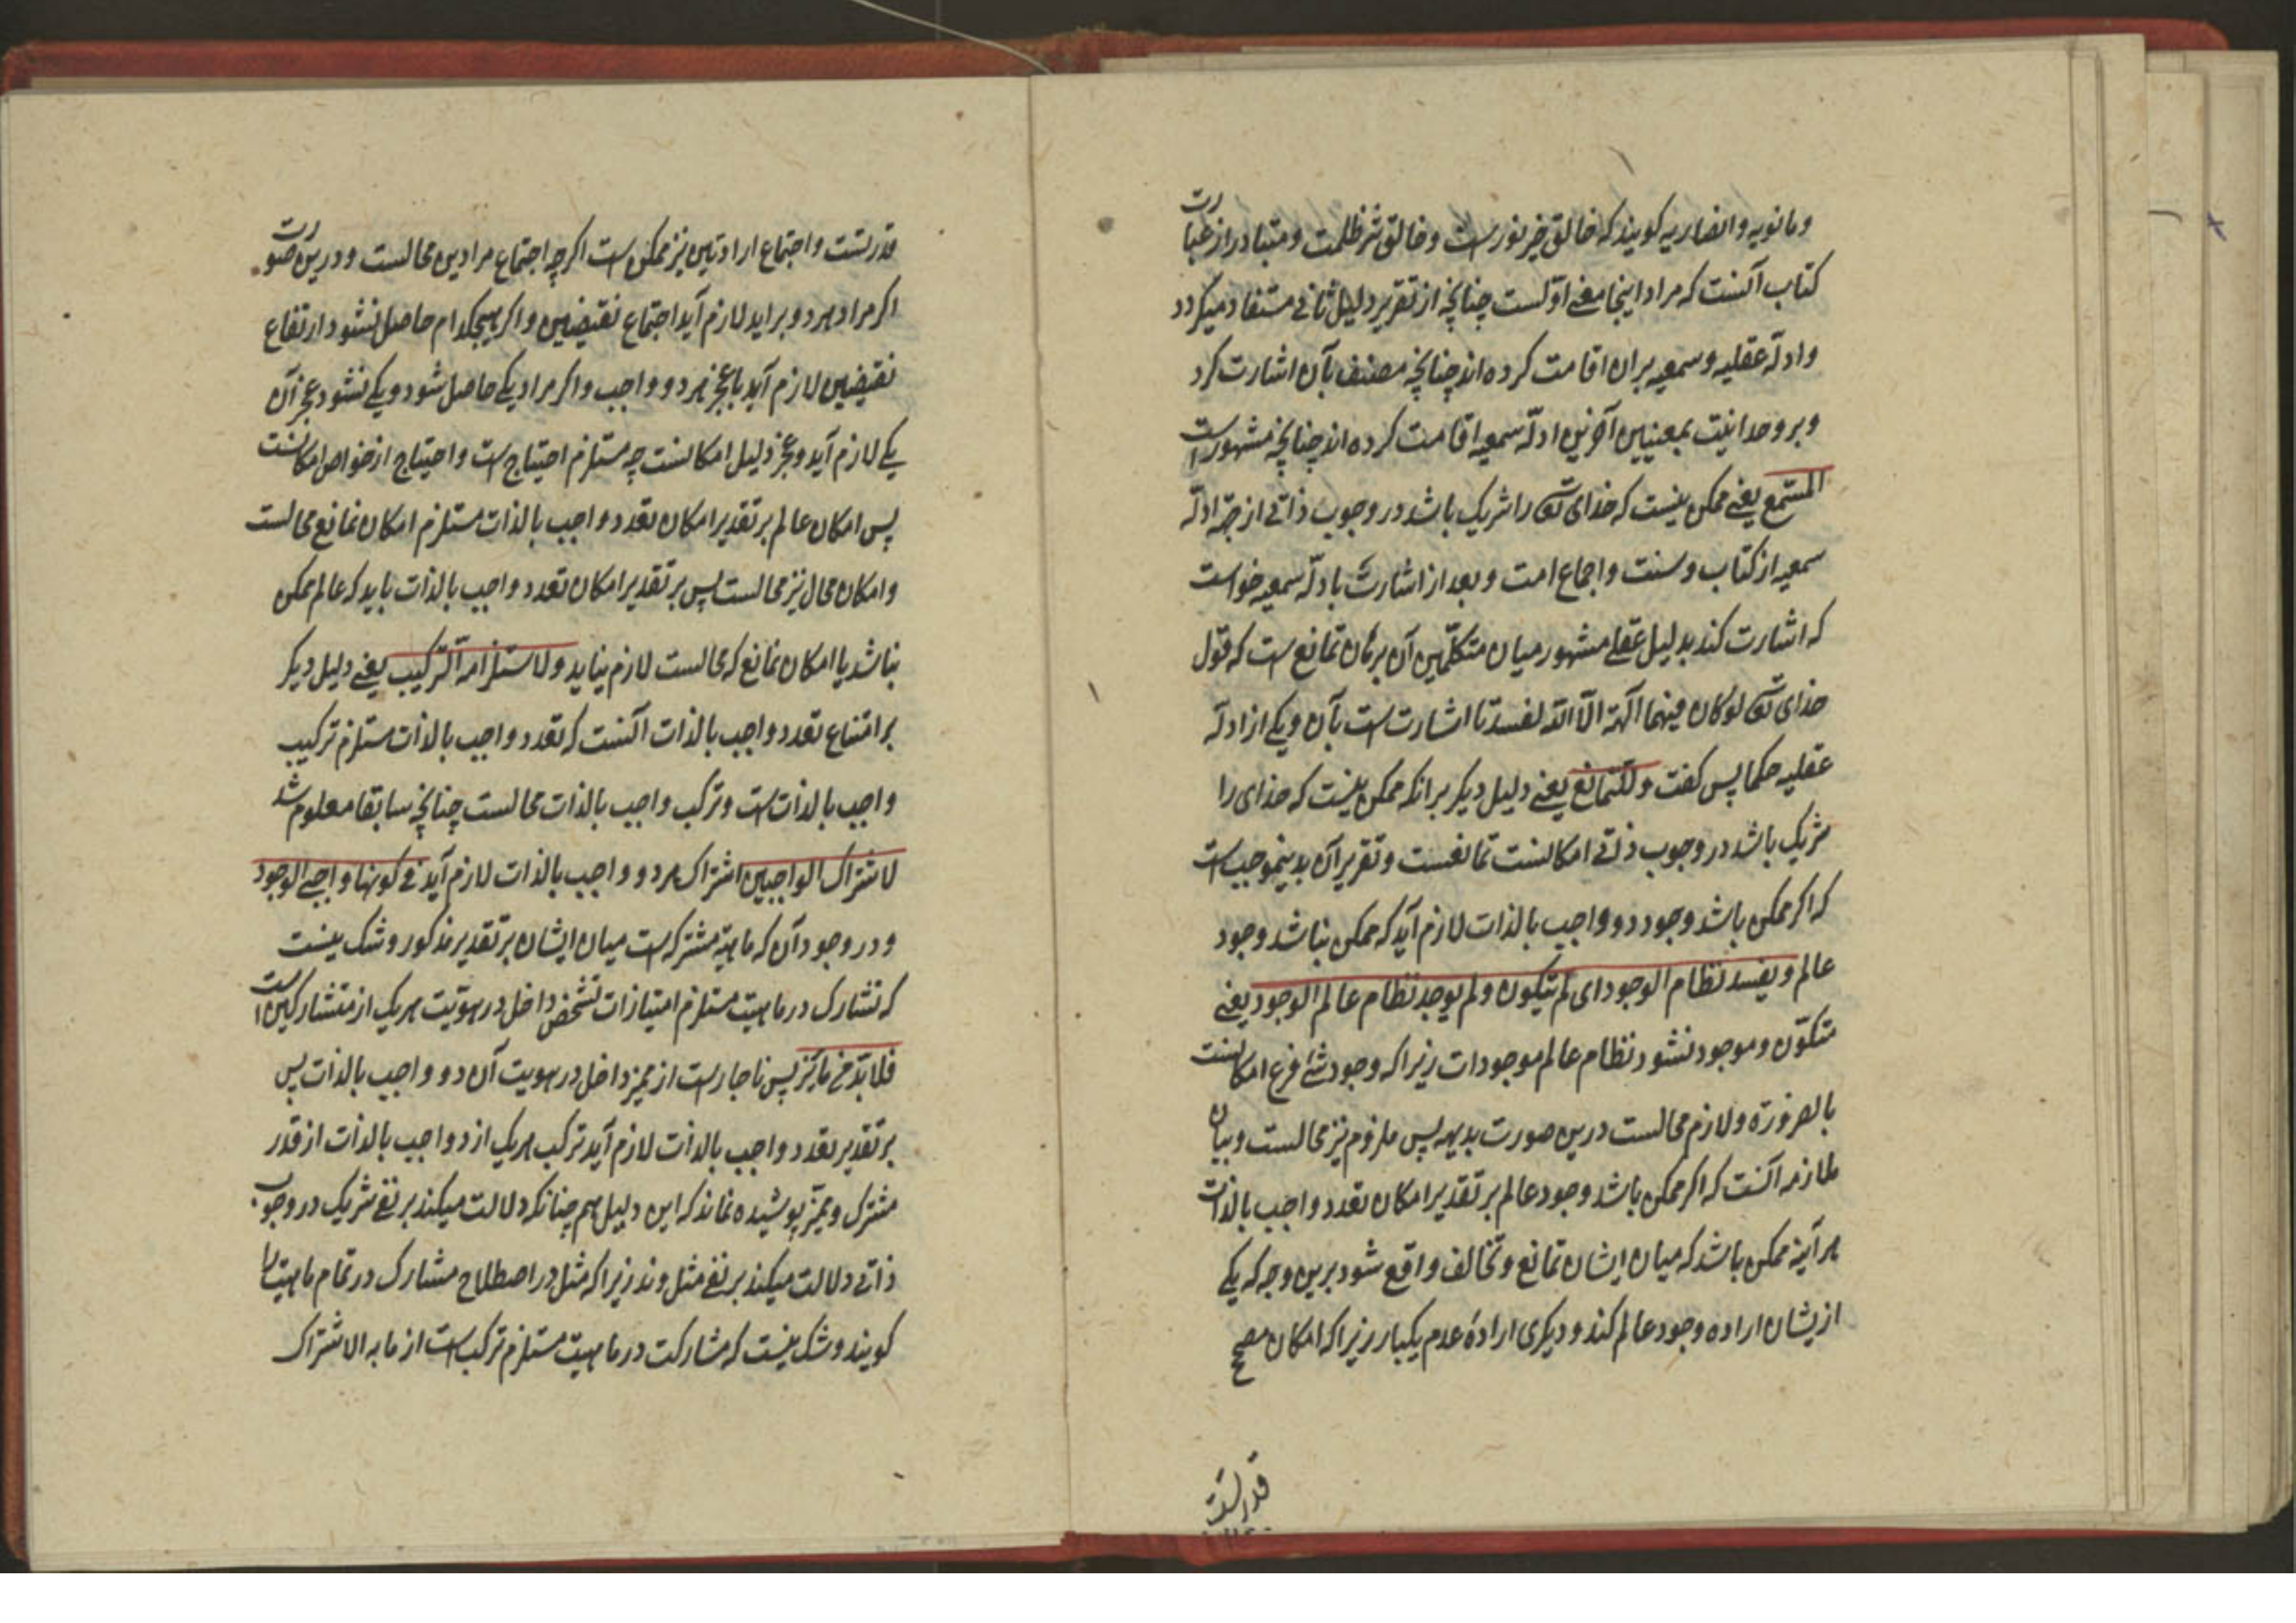 و مانویه و انصاریه کویند که خالق خیر نور است و خالق شر ظلمت و متبادر از عبارت
کتاب آنست که مراد اینجا معنے اوّلست چنانچه از تقریر دلیل ثانے مستفاد میکردد
و ادلّه عقلیه و سمعیه بران اقامت کرده اند چنانچه مصنف بآن اشارت کرد
و بر وحدانیت بمعنیین آخرین ادلّه سمعیه اقامت کرده اند چنانچه مشهور است
المستمع یعنے ممکن نیست که خدای تعه را شریک باشد در وجوب ذاتے از جهة ادلّه
سمعیه از کتاب و سنت و اجماع امت و بعد از اشارت بادلّه سمعیه خواست
که اشارت کند بدلیل عقلے مشهور میان متکلّمین آن برهان تمانع است که قول
خدای تعه لو کان فیهما آلهة الّا الله لفسدتا اشارت است بآن و یکے از ادلّه
عقلیه حکما پس کفت و للتمانع یعنے دلیل دیکر برانکه ممکن نیست که خدای را
شریک باشد در وجوب ذاتے امکانست تمانعست و تقریر آن بدینموجب است
که اکر ممکن باشد وجود دو واجب بالذات لازم آید که ممکن نباشد وجود
عالم و یفسد نظام الوجود ای لم یتکون و لم یوجد نظام عالم الوجود یعنے
متکوّن و موجود نشود نظام عالم موجودات زیرا که وجود شئ فرع امکانست
بالضرورة و لازم محالست درین صورت بدیهه پس ملزوم نیز محالست و بیان
ملازمه آنست که اکر ممکن باشد وجود عالم بر تقدیر امکان تعدد واجب بالذات
هر آینه ممکن باشد که میان ایشان تمانع و تخالف واقع شود برین وجه که یکے
ازیشان اراده وجود عالم کند و دیکری ارادهٔ عدم یکبار زیرا که امکان مصحح
قدرتست
قدرتست و اجتماع ارادتین نیز ممکن است اکرچه اجتماع مرادین محالست و درین صورت
اکر مراد هر دو براید لازم آید اجتماع نقیضین و اکر هیچکدام حاصل نشود ارتفاع
نقیضین لازم آید با عجز هر دو واجب و اکر مراد یکے حاصل شود و یکے نشود عجز آن
یکے لازم آید و عجز دلیل امکانست چه مستلزم احتیاج است و احتیاج از خواص امکانست
پس امکان عالم بر تقدیر امکان تعدد واجب بالذات مستلزم امکان تمانع محالست
و امکان محال نیز محالست پس بر تقدیر امکان تعدد واجب بالذات باید که عالم ممکن
نباشد یا امکان تمانع که محالست لازم نیاید و لاستلزامه الترکیب یعنے دلیل دیکر
بر امتناع تعدد واجب بالذات آنست که تعدد واجب بالذات مستلزم ترکیب
واجب بالذات است و ترکب واجب بالذات محالست چنانچه سابقا معلوم شد
لاشتراک الواجبین اشتراک هر دو واجب بالذات لازم آید فے کونهما واجبے الوجود
و در وجود آن که ماهیة مشترکه است میان ایشان بر تقدیر مذکور و شک نیست
که تشارک در ماهیت مستلزم امتیاز ذات تشخص داخل در هویّت هر یک از متشارکین است
فلا بدّ من مایز پس ناچار است از ممیز داخل در هویت آن دو واجب بالذات پس
بر تقدیر تعدد واجب بالذات لازم آید ترکب هر یک از دو واجب بالذات از قدر
مشترک و ممیّز پوشیده نماند که این دلیل هم چنانکه دلالت میکند بر نفے شریک در وجوب
ذاتے دلالت میکند بر نفے مثل و ند زیرا که مثل در اصطلاح مشارک در تمام ماهیت را
کویند و شک نیست که مشارکت در ماهیت مستلزم ترکب است از ما به الاشتراک